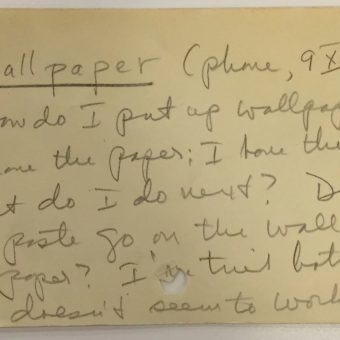 allpaper (phone, 9XI
ow do I put up wallpap
ve the paper; I have the
t do I do next? D
paste go on the wall
paper? I've tried bot
doesn't seem to work